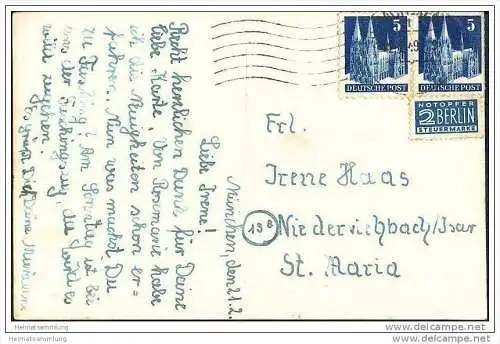 München, den 21.2.
Liebe Irene!
Recht herzlichen Dank für Deine
liebe Karte! Von Rosemarie habe
ich die Neuigkeiten schon er-
fahren. Nun was machst Du
zu Fasching? Am Sonntag ist bei
uns der Faschingszug, da wird es
wild zugehen.
Es grüßt Dich Deine
5
5
DEUTSCHE POST
DEUTSCHE POST
NOTOPFER
2 BERLIN
STEUERMARKE
Frl.
Irene Haas
13B
Niederviehbach/Isar
St. Maria
Heimatsammlung
Heimatsammlung
Heimatsammlung
Heimatsammlung